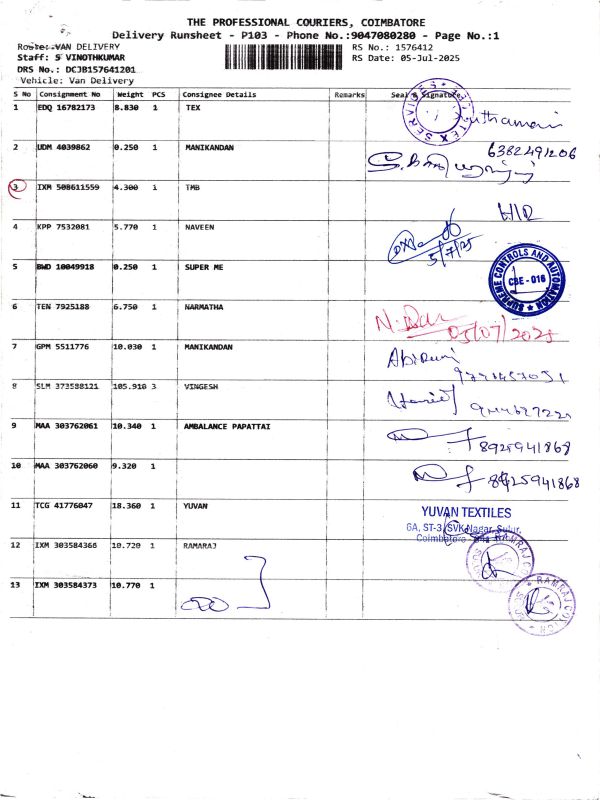 THE PROFESSIONAL COURIERS, COIMBATORE
Delivery Runsheet - P103 - Phone No.:9047080280 - Page No.:1
Route: VAN DELIVERY
RS No.: 1576412
Staff: S VINOTHKUMAR
RS Date: 05-Jul-2025
DRS No.: DCJB157641201
Vehicle: Van Delivery
S No Consignment No Weight PCS Consignee Details Remarks Seal Signature
1 EDQ 16782173 8.830 1 TEX
2 UDM 4039862 0.250 1 MANIKANDAN 6382491206
3 IXM 508611559 4.300 1 TMB
4 KPP 7532081 5.770 1 NAVEEN 5/7/25
5 BWD 10049918 0.250 1 SUPER ME
SUPREME CONTROLS AND AUTOMATION CBE - 016
6 TEN 7925188 6.750 1 NARMATHA 05/07/2025
7 GPM 5511776 10.030 1 MANIKANDAN
8 SLM 373588121 105.910 3 VINGESH
9 MAA 303762061 10.340 1 AMBALANCE PAPATTAI 8925941868
10 MAA 303762060 9.320 1
11 TCG 41776047 18.360 1 YUVAN
YUVAN TEXTILES
6A, ST-3, SVK Nagar, Sulur,
Coimbatore
12 IXM 303584366 10.720 1 RAMARAJ
13 IXM 303584373 10.770 1
RAMRAJ CO